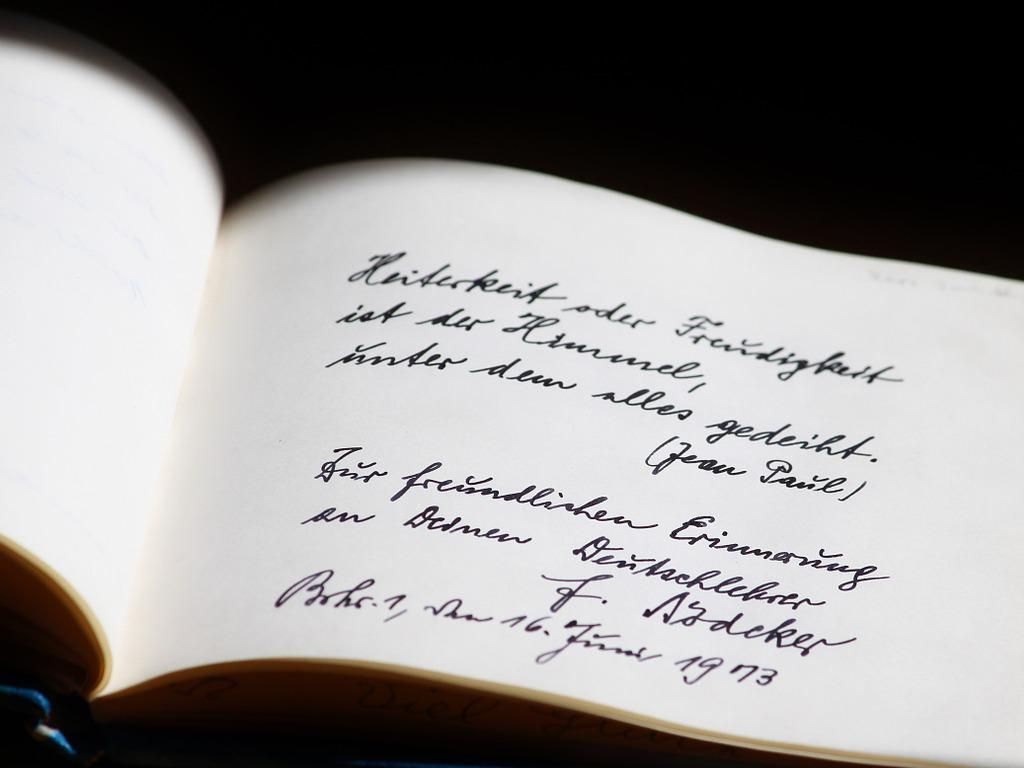 Heiterkeit oder Freudigkeit
ist der Himmel,
unter dem alles gedeiht.
(Jean Paul.)
Zur freundlichen Erinnerung
an Deinen Deutschlehrer
F. Bödcker
Bohr. 1, den 16. Juni 1973
Viel